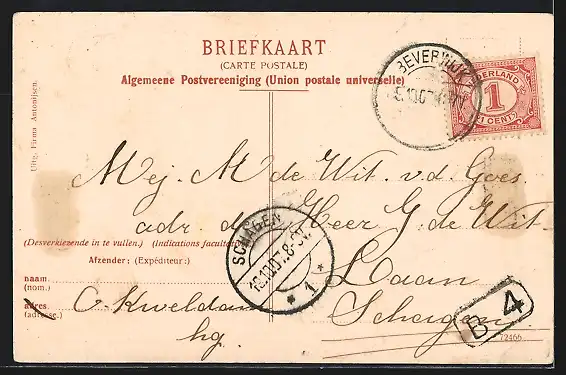 BRIEFKAART
(CARTE POSTALE)
Algemeene Postvereeniging (Union postale universelle)
BEVERWIJK
NEDERLAND
1
CENT
Uitg. Firma Antonijsen.
Mej. M de Wit. v.d. Goes.
adr. de Heer G. de Wit.
(Desverkiezende in te vullen.) (Indications facultatives
SCHAGEN
10.10.07. 8-9V.
* 1 *
Afzender: (Expéditeur:)
Laan
naam
(nom.)
adres.
(adresse.)
hg.
Schagen
B 4
7246b